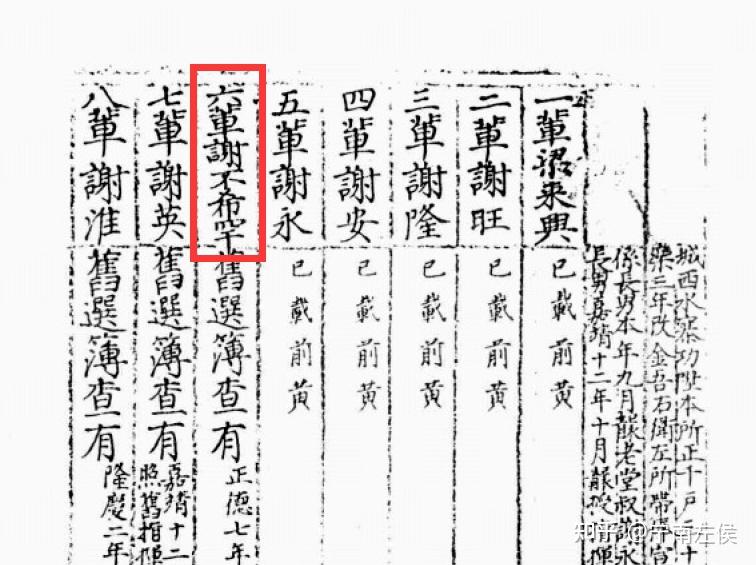 城西水寨功陞本所正千戶三十
樂三年改金吾右衛左所帶
係長男本年九月襲老堂叔謝永
長男嘉靖十二年十月襲授指揮
一輩梁來興
已載前黃
二輩謝旺
已載前黃
三輩謝隆
已載前黃
四輩謝安
已載前黃
五輩謝永
已載前黃
六輩謝不希罕
舊選簿查有
正德七年
七輩謝英
舊選簿查有
嘉靖十二
照舊指揮
八輩謝淮
舊選簿查有
隆慶二年
知乎 @宁南左侯